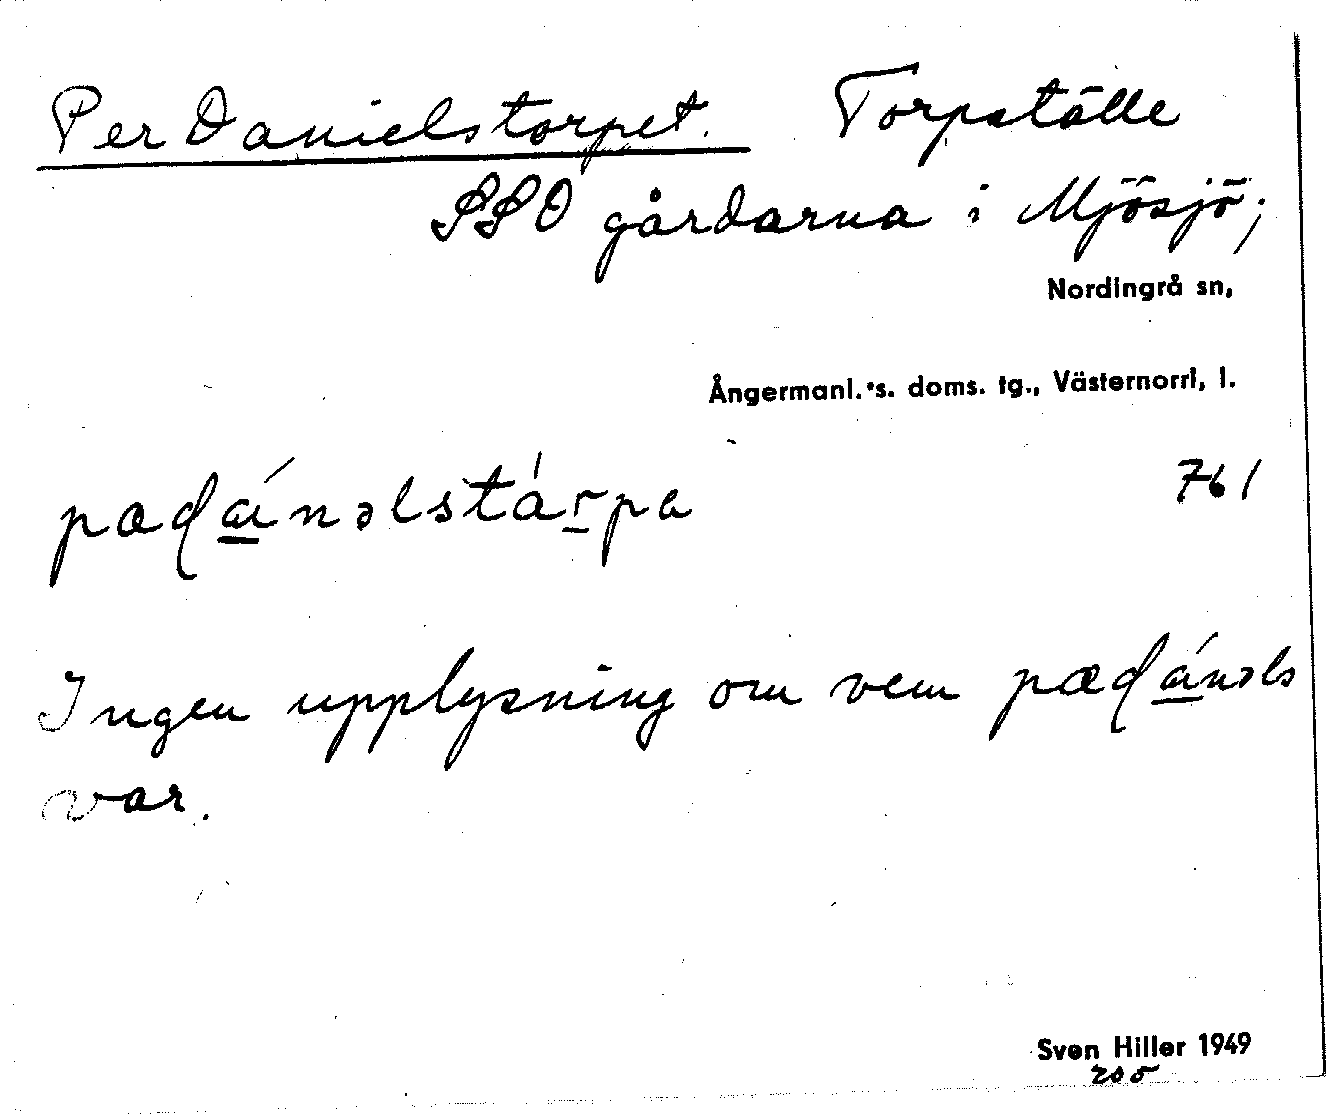 Per Danielstorpet. Torpställe
SSO gårdarna i Mjösjö;
Nordingrå sn,
Ångermanl.'s. doms. tg., Västernorrl, l.
pæɖánəlstárpa 761
Ingen upplysning om vem pæɖánəls
var.
Sven Hiller 1949
205